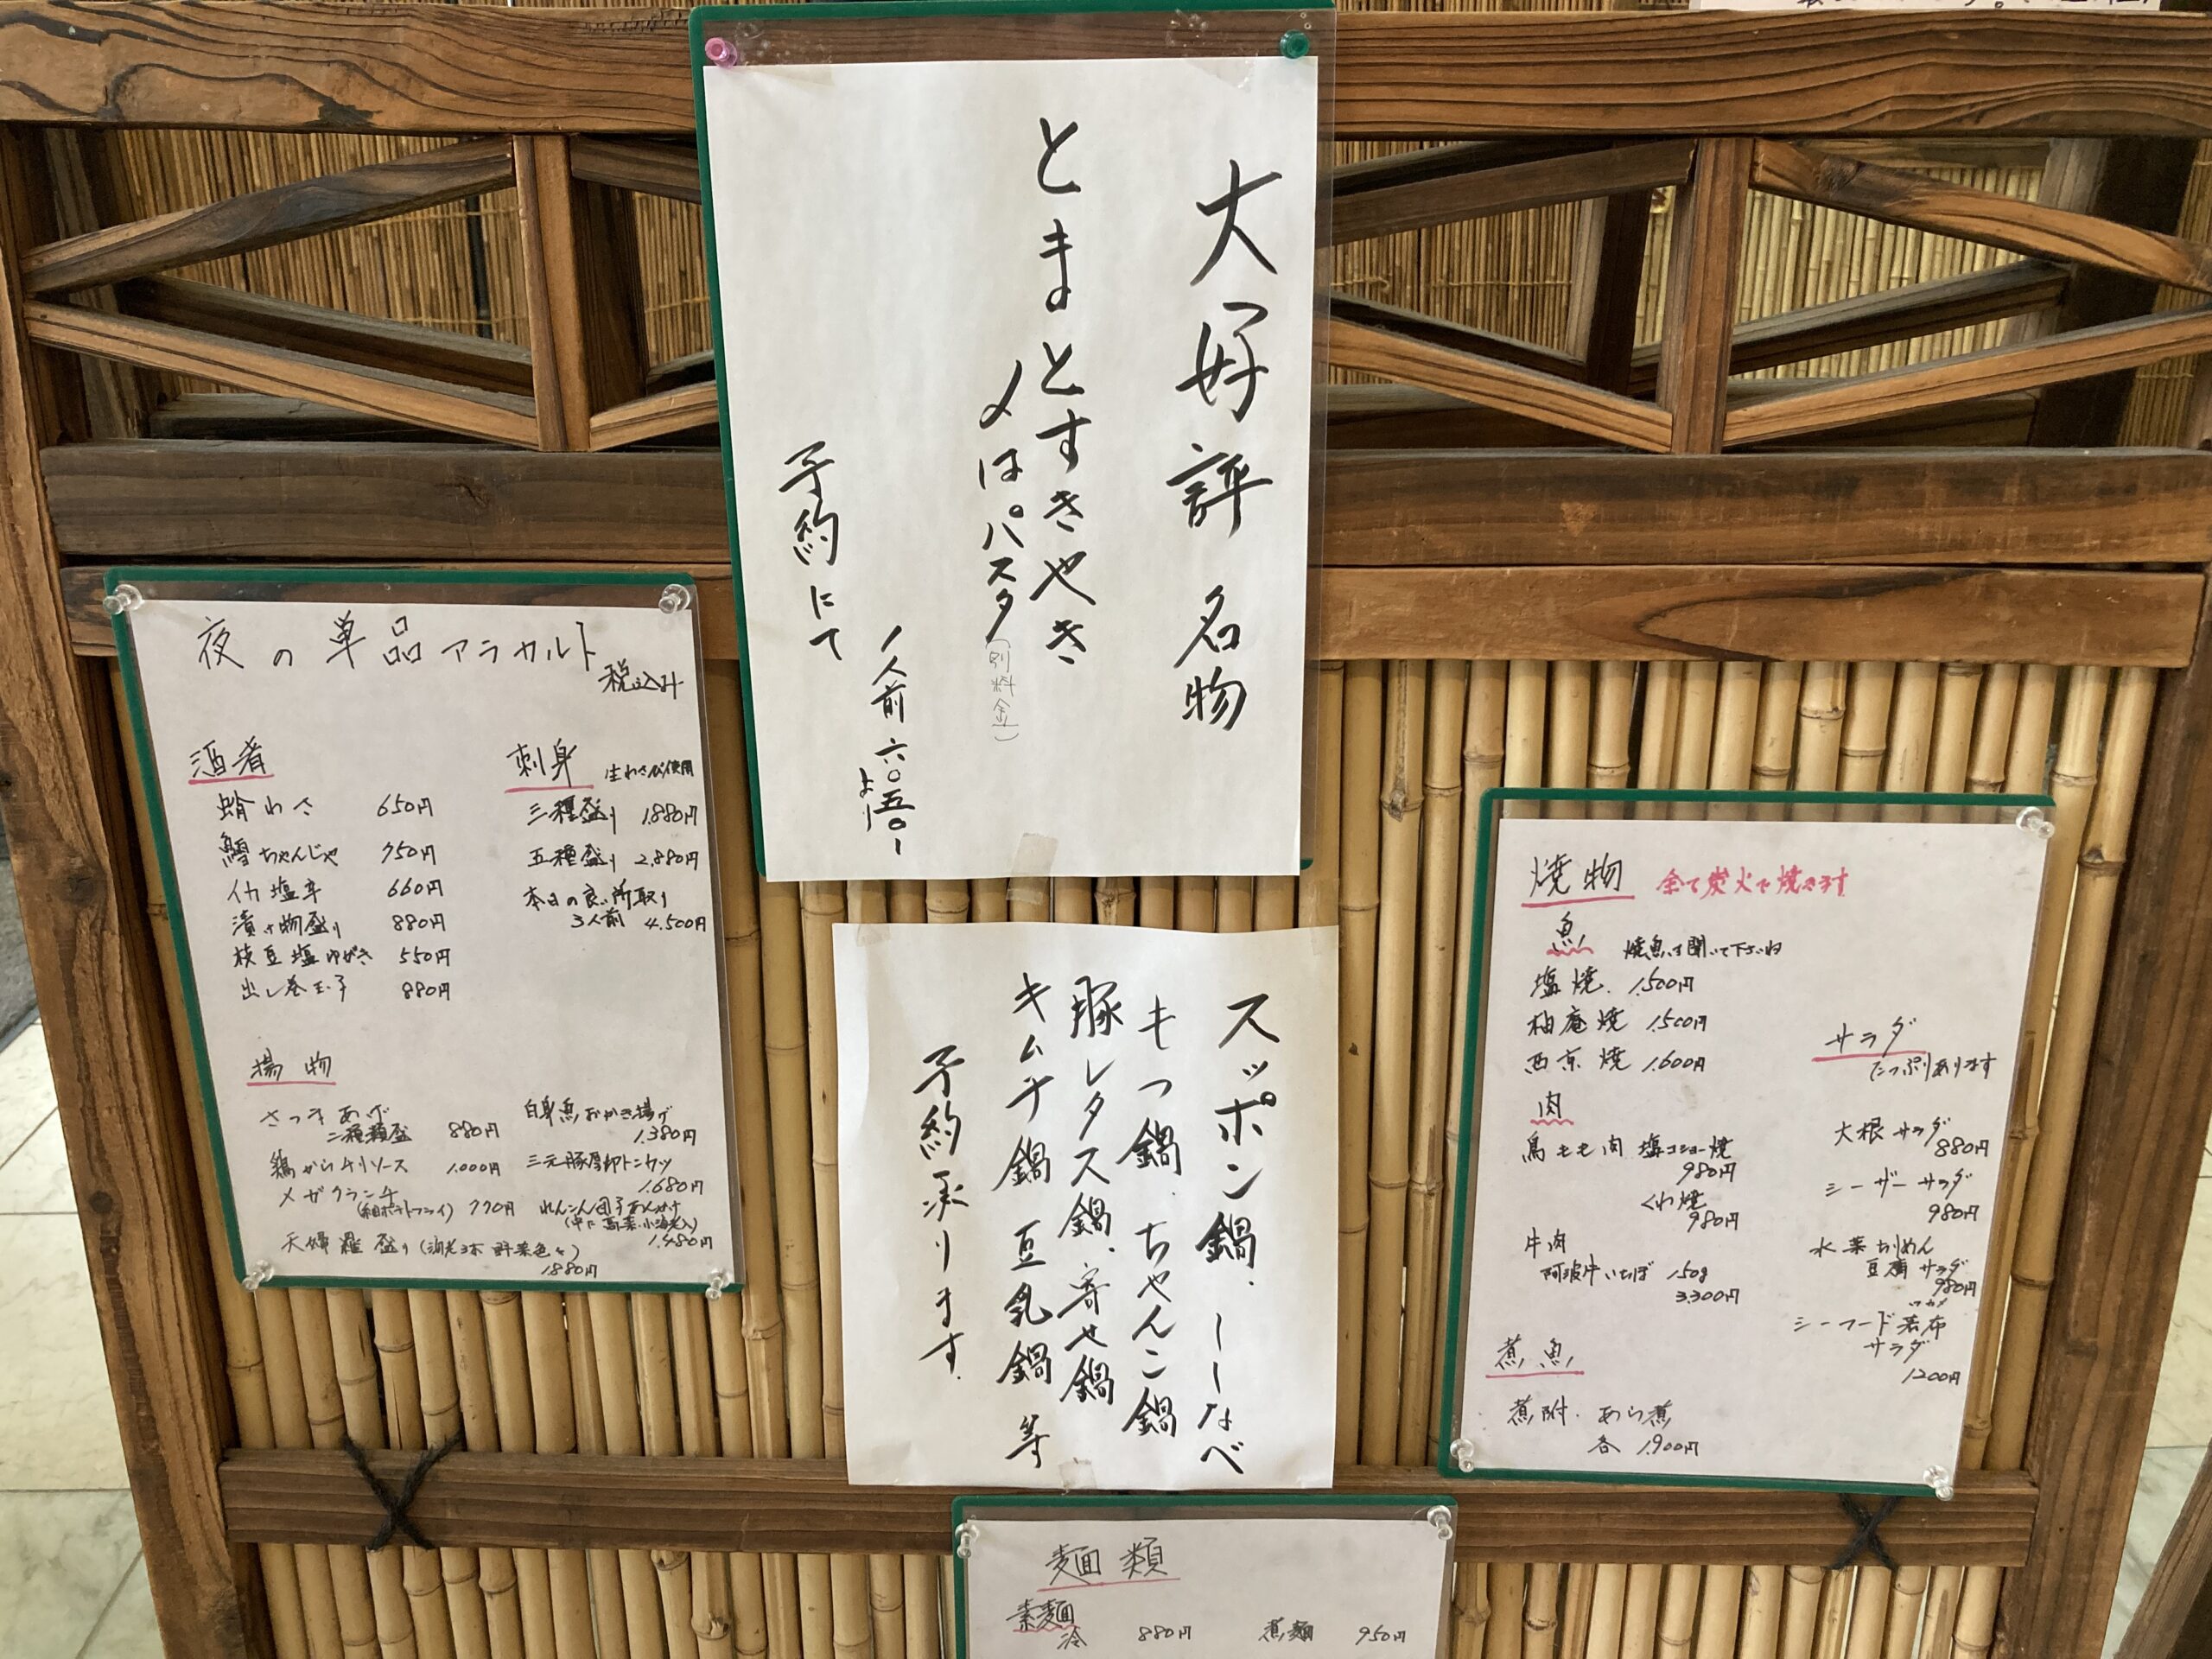 大好評 名物
とまとすきやき
〆はパスタ(別料金)
1人前 六〇五〇-
より
予約にて
夜の単品アラカルト
税込み
酒肴
650円
鱈ちゃんじゃ 750円
イカ塩辛 660円
漬け物盛り 880円
枝豆塩ゆがき 550円
出し巻玉子 880円
刺身 生わさび使用
三種盛り 1,880円
五種盛り 2,880円
本日の良い所取り
3人前 4,500円
揚物
さつまあげ
二種類盛 880円
鶏からチリソース 1,000円
メガクランチ
(細ポテトフライ) 770円
天婦羅盛り(海老3本 野菜色々)
1880円
白身魚おかき揚げ
1,380円
三元豚厚切トンカツ
1,680円
れんこん団子あんかけ
(中に高菜、小海老入)
1,480円
スッポン鍋. ししなべ
もつ鍋. ちゃんこ鍋
豚レタス鍋. 寄せ鍋
キムチ鍋 豆乳鍋 等
予約承ります.
焼物 全て炭火で焼きます
魚 焼魚は聞いて下さいね
塩焼. 1,500円
柚庵焼 1,500円
西京焼 1,600円
肉
鳥もも肉 塩コショー焼
980円
くわ焼
980円
牛肉
阿波牛いちぼ 150g
3,300円
煮魚
煮附. あら煮
各 1,900円
サラダ
たっぷりあります
大根サラダ
880円
シーザーサラダ
980円
水菜ちりめん
豆腐サラダ
980円
ワカメ
シーフード若布
サラダ
1200円
麺類
素麺
冷 880円 煮麺 950円